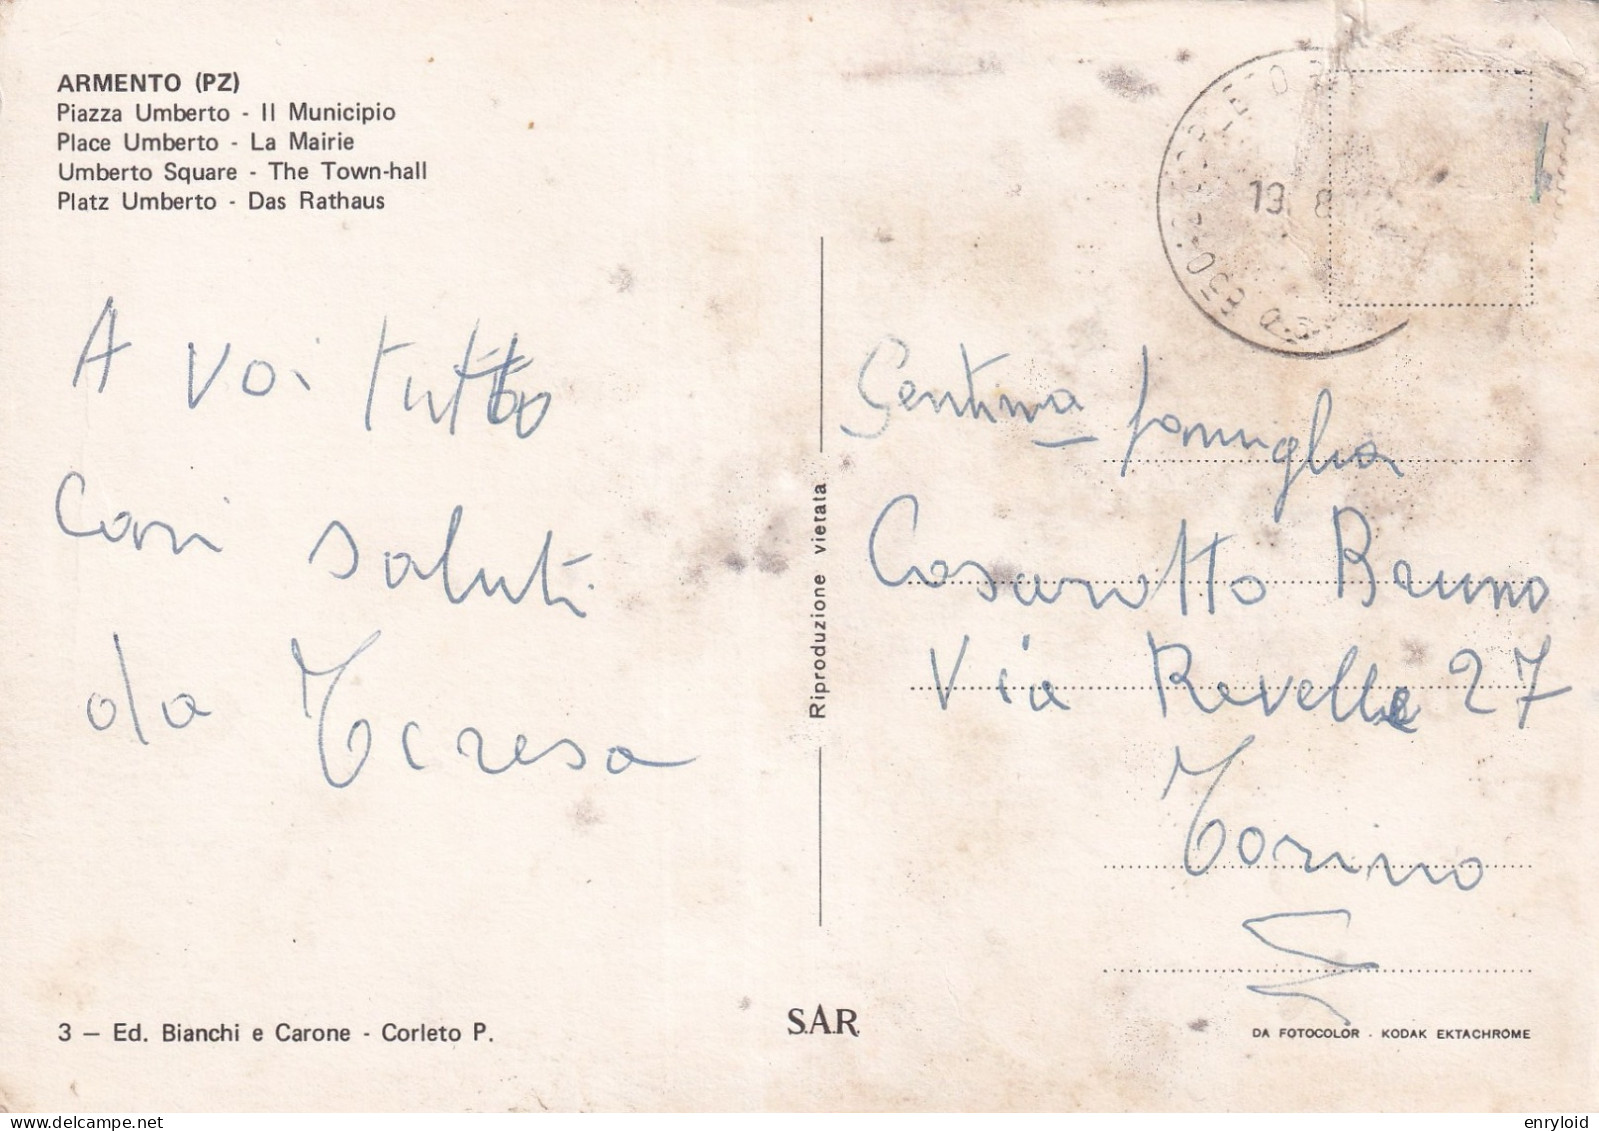 ARMENTO (PZ)
Piazza Umberto - Il Municipio
Place Umberto - La Mairie
Umberto Square - The Town-hall
Platz Umberto - Das Rathaus
A voi tutto
cari saluti
da Teresa
3 — Ed. Bianchi e Carone - Corleto P.
Riproduzione vietata
S.A.R.
19 8
Gentima famiglia
Casarotto Bruno
Via Revelle 27
Torino
DA FOTOCOLOR - KODAK EKTACHROME
delcampe.net
enryloid